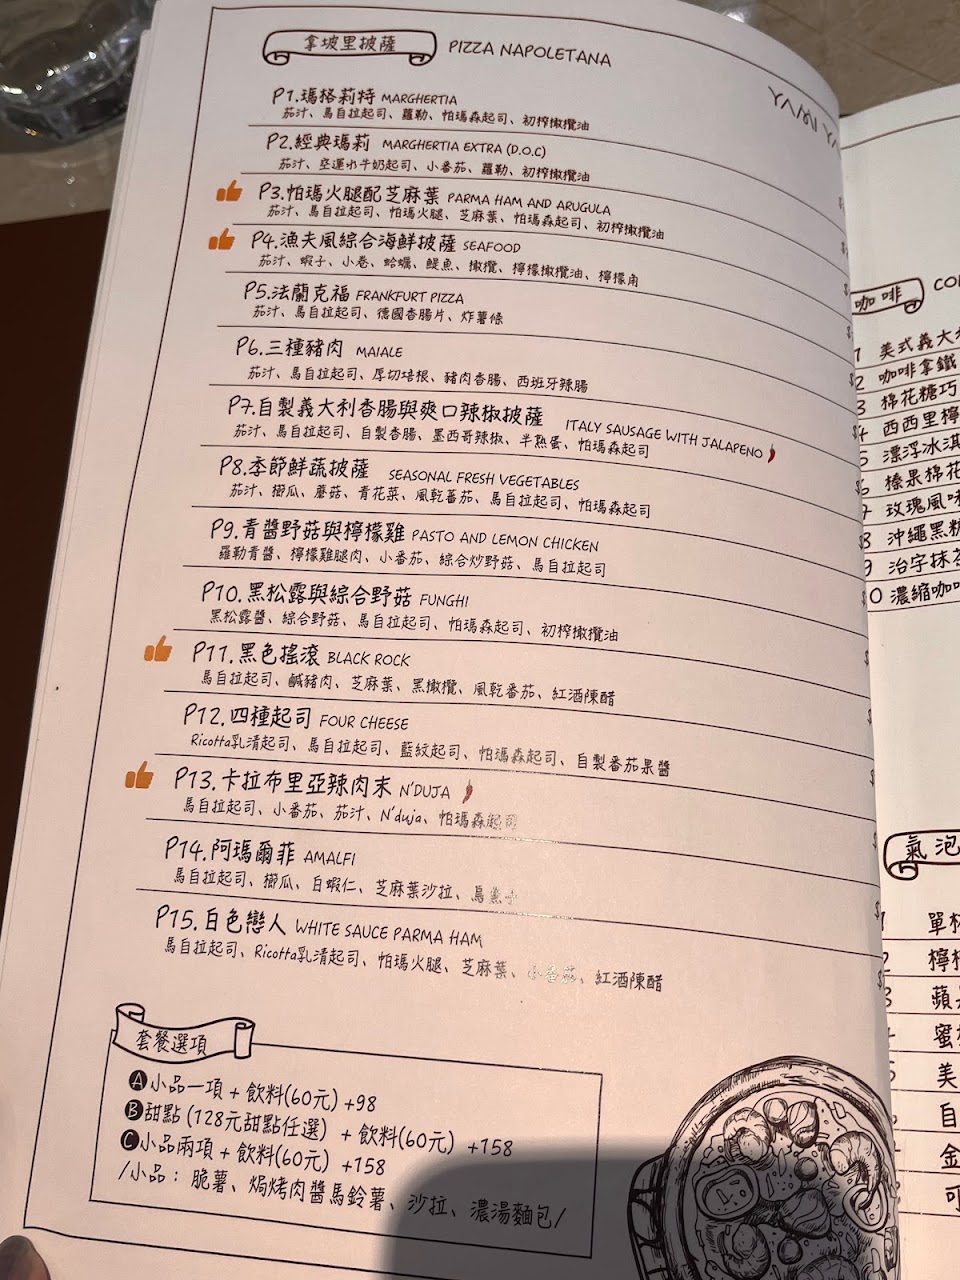 拿坡里披薩 PIZZA NAPOLETANA
P1.瑪格莉特 MARGHERTIA
茄汁、馬自拉起司、蘿勒、帕瑪森起司、初榨橄欖油
P2.經典瑪莉 MARGHERTIA EXTRA (D.O.C)
茄汁、空運水牛奶起司、小番茄、蘿勒、初榨橄欖油
P3.帕瑪火腿配芝麻葉 PARMA HAM AND ARUGULA
茄汁、馬自拉起司、帕瑪火腿、芝麻葉、帕瑪森起司、初榨橄欖油
P4.漁夫風綜合海鮮披薩 SEAFOOD
茄汁、蝦子、小卷、蛤蠣、鯷魚、橄欖、檸檬橄欖油、檸檬角
P5.法蘭克福 FRANKFURT PIZZA
茄汁、馬自拉起司、德國香腸片、炸薯條
P6.三種豬肉 MAIALE
茄汁、馬自拉起司、厚切培根、豬肉香腸、西班牙辣腸
P7.自製義大利香腸與爽口辣椒披薩 ITALY SAUSAGE WITH JALAPENO
茄汁、馬自拉起司、自製香腸、墨西哥辣椒、半熟蛋、帕瑪森起司
P8.季節鮮蔬披薩 SEASONAL FRESH VEGETABLES
茄汁、櫛瓜、蘑菇、青花菜、風乾蕃茄、馬自拉起司、帕瑪森起司
P9.青醬野菇與檸檬雞 PASTO AND LEMON CHICKEN
羅勒青醬、檸檬雞腿肉、小番茄、綜合炒野菇、馬自拉起司
P10.黑松露與綜合野菇 FUNGHI
黑松露醬、綜合野菇、馬自拉起司、帕瑪森起司、初榨橄欖油
P11.黑色搖滾 BLACK ROCK
馬自拉起司、鹹豬肉、芝麻葉、黑橄欖、風乾番茄、紅酒陳醋
P12.四種起司 FOUR CHEESE
Ricotta乳清起司、馬自拉起司、藍紋起司、帕瑪森起司、自製番茄果醬
P13.卡拉布里亞辣肉末 N'DUJA
馬自拉起司、小番茄、茄汁、N'duja、帕瑪森起司
P14.阿瑪爾菲 AMALFI
馬自拉起司、櫛瓜、白蝦仁、芝麻葉沙拉、烏魚子
P15.白色戀人 WHITE SAUCE PARMA HAM
馬自拉起司、Ricotta乳清起司、帕瑪火腿、芝麻葉、小番茄、紅酒陳醋
套餐選項
A小品一項 + 飲料(60元) +98
B甜點 (128元甜點任選) + 飲料(60元) +158
C小品兩項 + 飲料(60元) +158
/小品：脆薯、焗烤肉醬馬鈴薯、沙拉、濃湯麵包/
咖啡 CO
美式義大
2 咖啡拿鐵
3 棉花糖巧
4 西西里檸
5 漂浮冰淇
6 榛果棉花
7 玫瑰風味
8 沖繩黑糖
9 治宇抹茶
0 濃縮咖啡
氣泡
單
2 檸檬
3 蘋
蜜
美
自
金
可